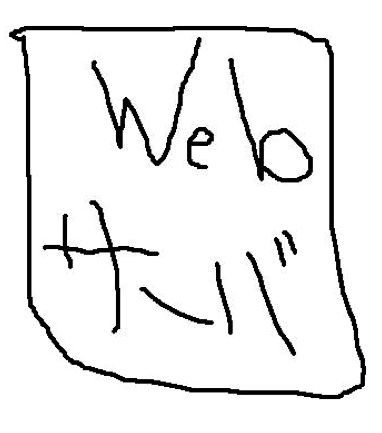 Web
サーバ